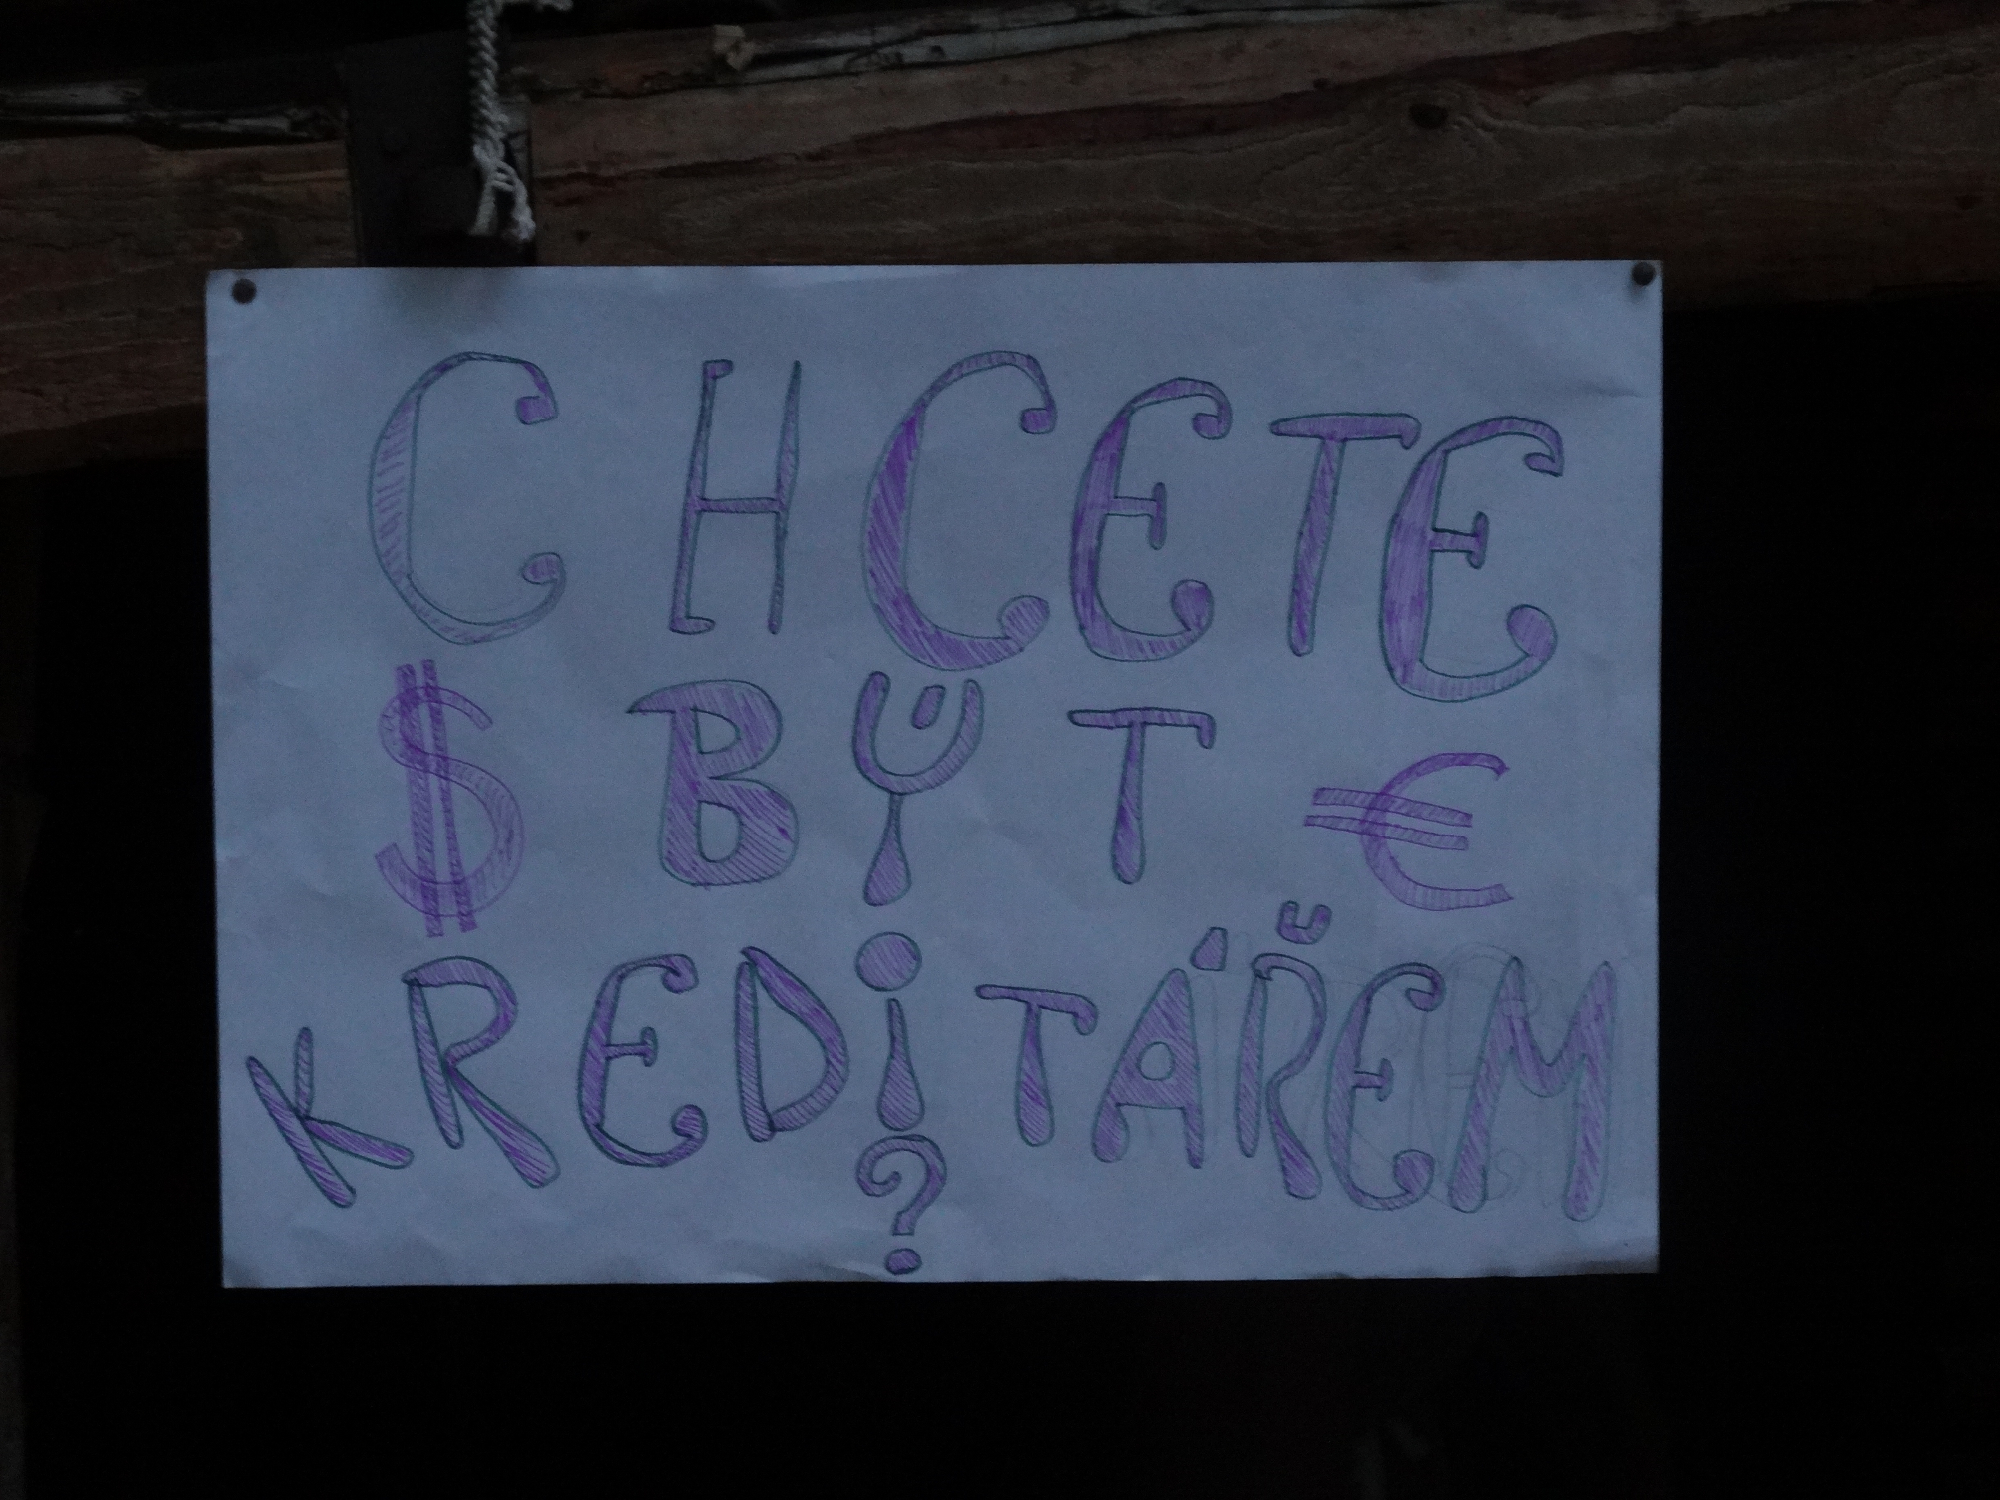 CHCETE
$ BÝT €
KREDiTÁŘEM
?